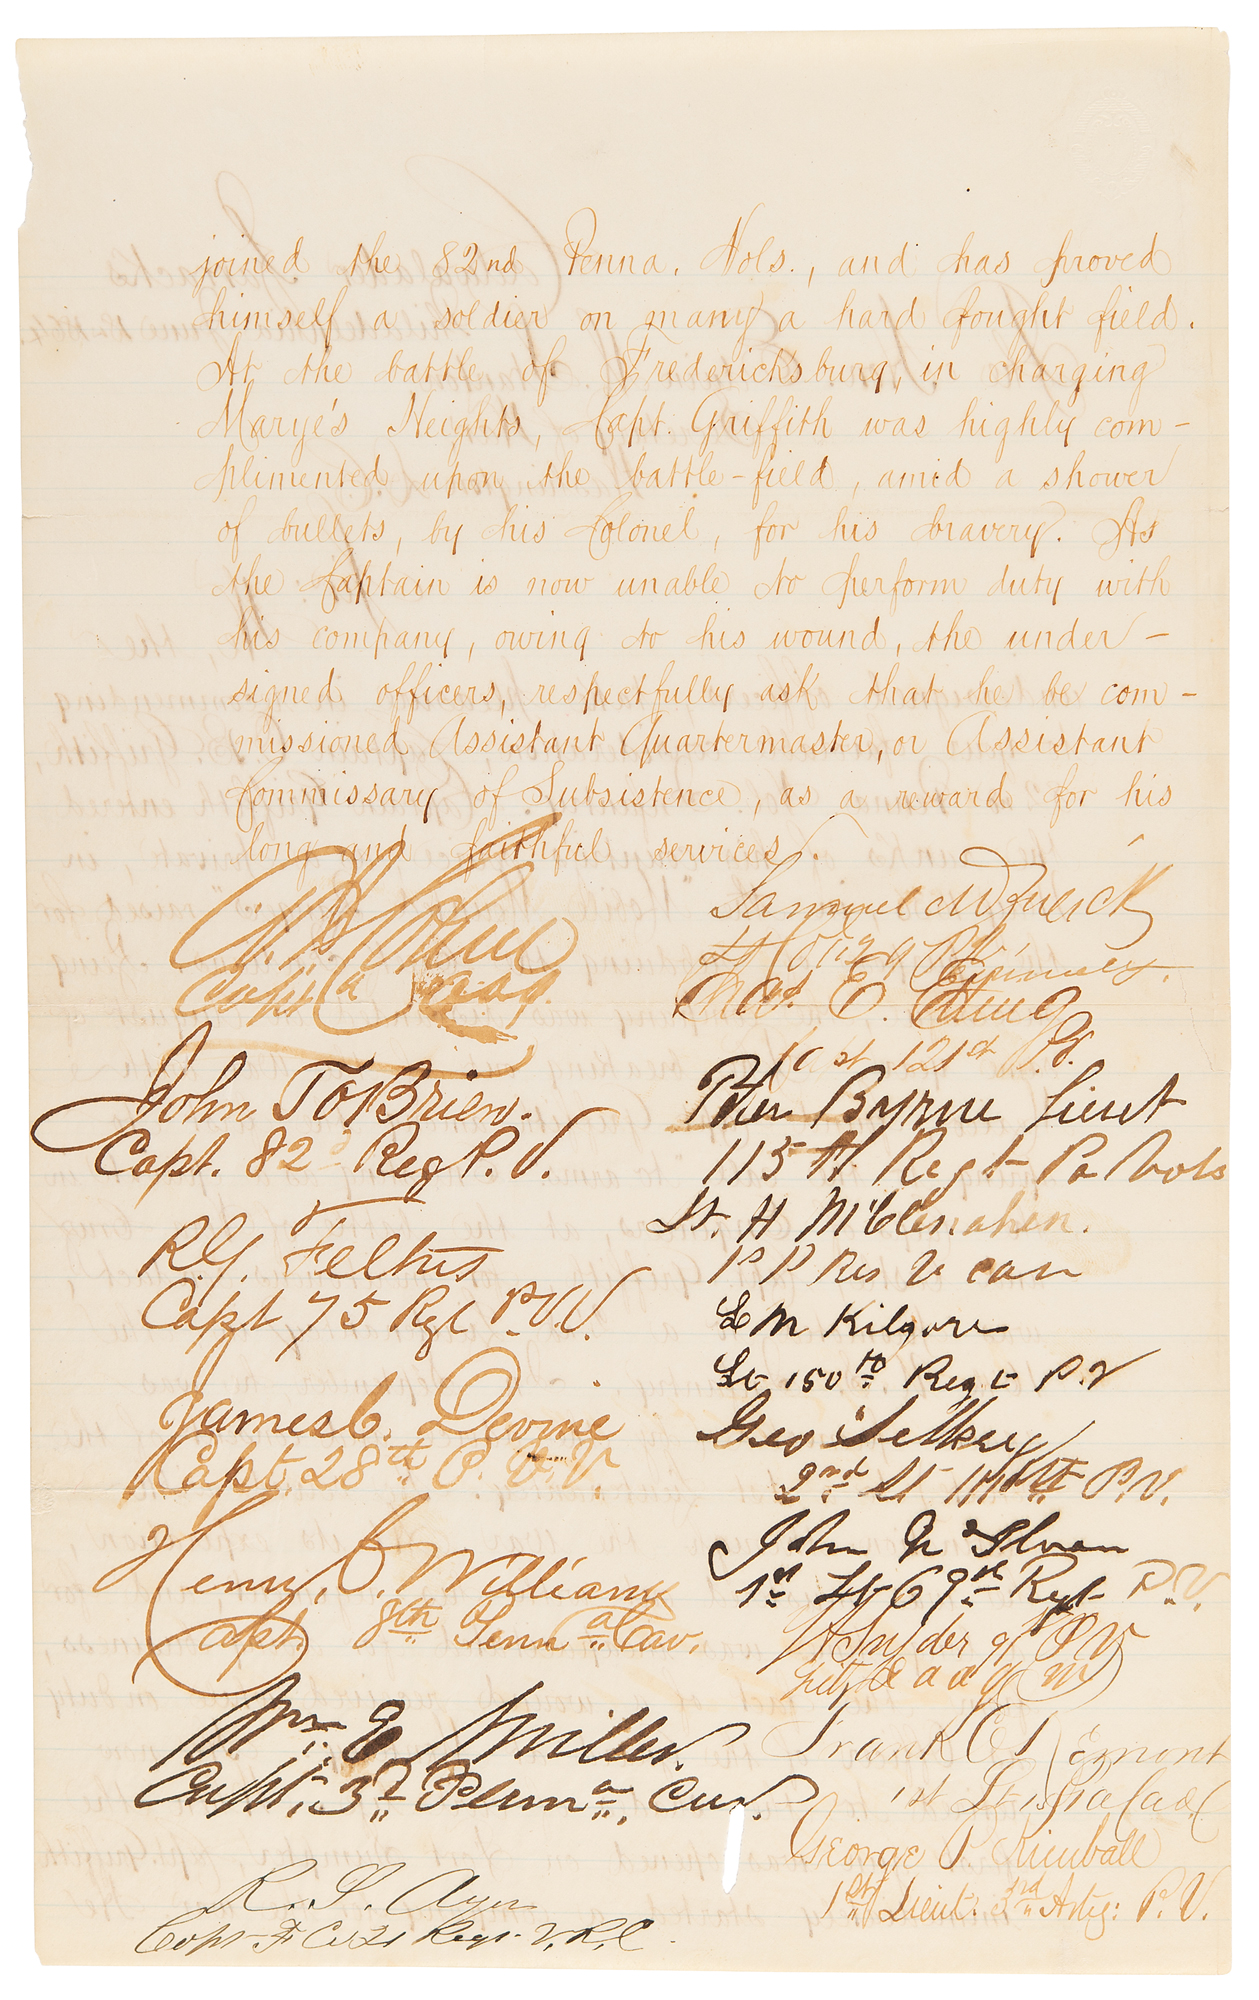 joined the 82nd Penna. Vols., and has proved
himself a soldier on many a hard fought field.
At the battle of Fredericksburg, in charging
Marye's Heights, Capt. Griffith was highly com-
plimented upon the battle-field, amid a shower
of bullets, by his Colonel, for his bravery. As
the Captain is now unable to perform duty with
his company, owing to his wound, the under-
signed officers, respectfully ask that he be com-
missioned Assistant Quartermaster, or Assistant
Commissary of Subsistence, as a reward for his
long and faithful services.
Capt
John T OBrien.
Capt. 82d Reg P. V.
R.G. Feltus
Capt 75 Rgt P.V.V.
James C. Devine
Capt. 28th P. V. V.
Henry C. Williams
Capt. 8th Penna Cav.
Wm E Miller.
Capt. 3d Penna. Cav.
R. S. Ayer
Capt F Co 21 Regt V.R.C.
Samuel
Chas E.
121st P.V.
Peter Byrne Lieut
115th Regt Pa Vols
Lt. H McClenahen.
1st P Res V Cav
L M Kilgore
Lt 150th Regt P.V
Geo Silkey
2nd Lt P.V.
John
1st Lt 69th Regt P.V.
Snyder 9 P V
Frank
1st Lt
George P. Kimball
1st Lieut: 3rd Arty: P. V.